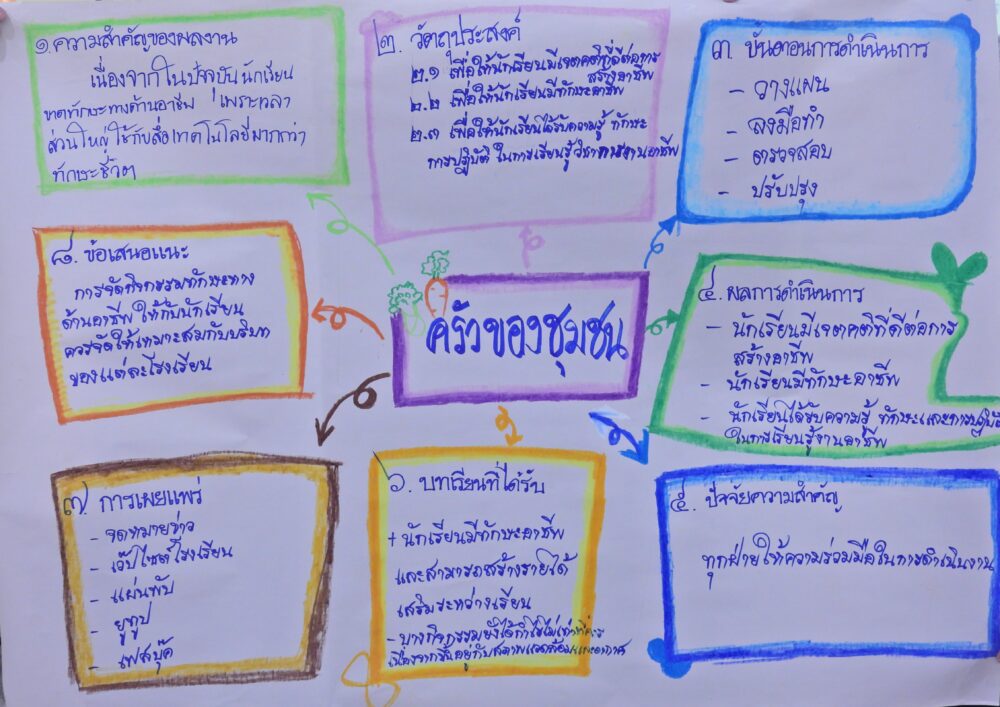 ๑. ความสำคัญของผลงาน
เนื่องจากในปัจจุบันนักเรียน
ขาดทักษะทางด้านอาชีพ เพราะเวลา
ส่วนใหญ่ใช้กับสื่อเทคโนโลยีมากกว่า
ทักษะชีวิต
๒. วัตถุประสงค์
๒.๑ เพื่อให้นักเรียนมีเจตคติที่ดีต่อการ
สร้างอาชีพ
๒.๒ เพื่อให้นักเรียนมีทักษะอาชีพ
๒.๓ เพื่อให้นักเรียนได้รับความรู้ ทักษะ
การปฏิบัติ ในการเรียนรู้วิชาการงานอาชีพ
๓. ขั้นตอนการดำเนินการ
- วางแผน
- ลงมือทำ
- ตรวจสอบ
- ปรับปรุง
๘. ข้อเสนอแนะ
การจัดกิจกรรมทักษะทาง
ด้านอาชีพ ให้กับนักเรียน
ควรจัดให้เหมาะสมกับบริบท
ของแต่ละโรงเรียน
ครัวของชุมชน
๔. ผลการดำเนินการ
- นักเรียนมีเจตคติที่ดีต่อการ
สร้างอาชีพ
- นักเรียนมีทักษะอาชีพ
- นักเรียนได้รับความรู้ ทักษะและการปฏิบัติ
ในการเรียนรู้งานอาชีพ
๗. การเผยแพร่
- จดหมายข่าว
- เว็ปไซต์โรงเรียน
- แผ่นพับ
- ยูทูป
- เฟสบุ๊ค
๖. บทเรียนที่ได้รับ
+ นักเรียนมีทักษะอาชีพ
และสามารถสร้างรายได้
เสริมระหว่างเรียน
- บางกิจกรรมยังได้กำไรไม่เท่าที่ควร
เนื่องจากขึ้นอยู่กับสภาพแวดล้อมและอากาศ
๕. ปัจจัยความสำคัญ
ทุกฝ่ายให้ความร่วมมือในการดำเนินงาน